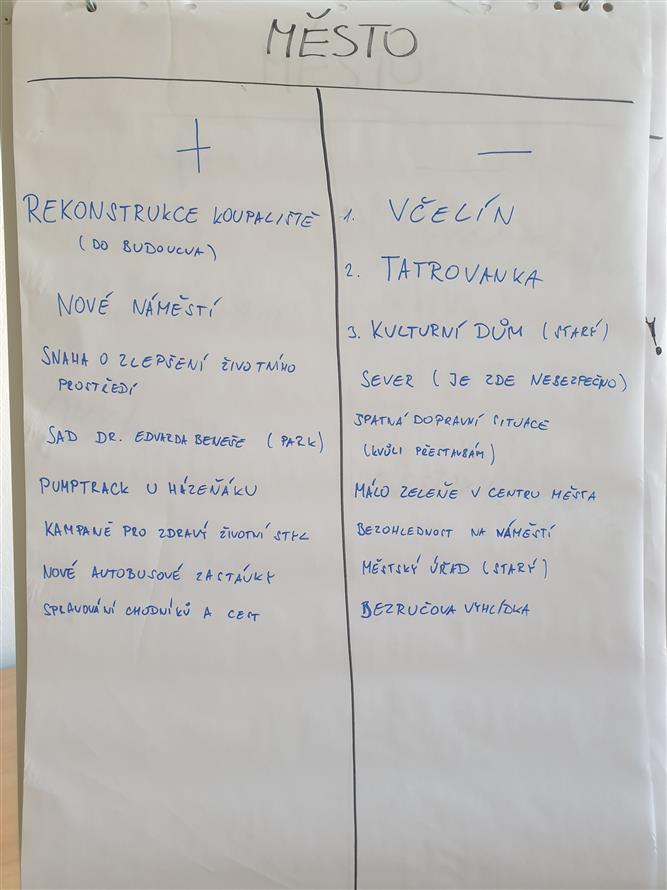 MĚSTO
+
REKONSTRUKCE KOUPALIŠTĚ
(DO BUDOUCNA)
NOVÉ NÁMĚSTÍ
SNAHA O ZLEPŠENÍ ŽIVOTNÍHO
PROSTŘEDÍ
SAD DR. EDVARDA BENEŠE (PARK)
PUMPTRACK U HÁZEŇÁKU
KAMPANĚ PRO ZDRAVÝ ŽIVOTNÍ STYL
NOVÉ AUTOBUSOVÉ ZASTÁVKY
SPRAVOVÁNÍ CHODNÍKŮ A CEST
—
1. VČELÍN
2. TATROVANKA
3. KULTURNÍ DŮM (STARÝ)
SEVER (JE ZDE NEBEZPEČNO)
ŠPATNÁ DOPRAVNÍ SITUACE
(KVŮLI PŘESTAVBÁM)
MÁLO ZELENĚ V CENTRU MĚSTA
BEZOHLEDNOST NA NÁMĚSTÍ
MĚSTSKÝ ÚŘAD (STARÝ)
BEZRUČOVA VYHLÍDKA